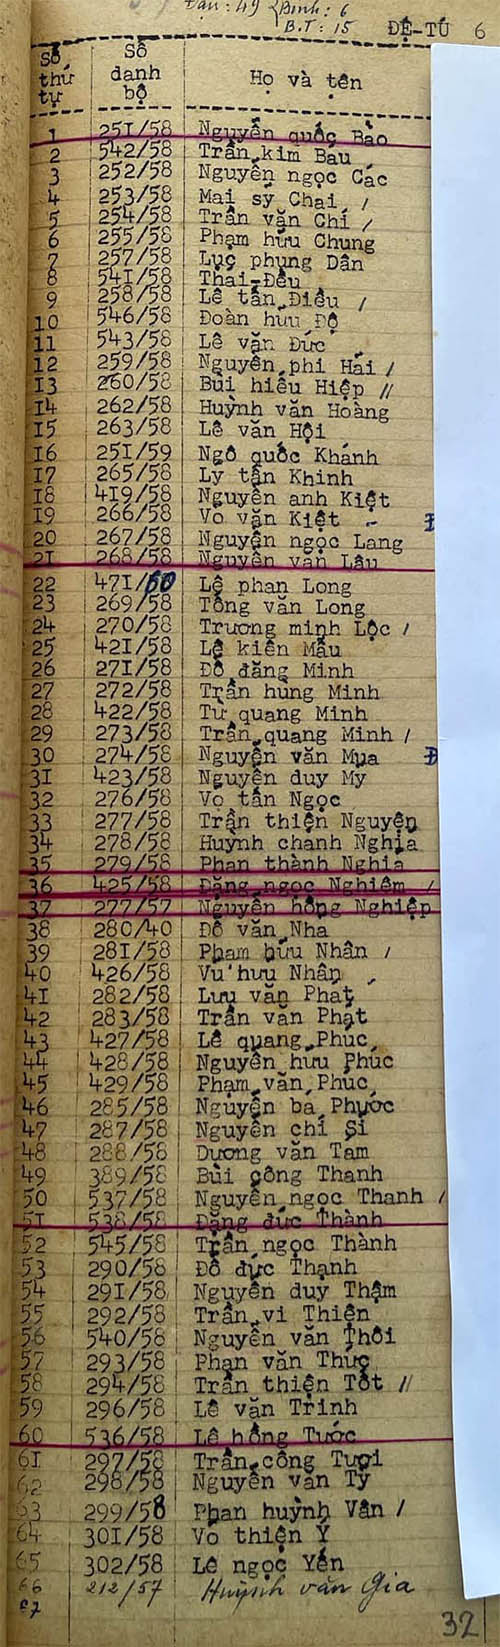 Đạn : 49 { Bình : 6
B.T : 15
ĐỆ-TỨ 6
Số thứ tự Số danh bộ Họ và tện
1 251/58 Nguyễn quốc Bảo
2 542/58 Trần kim Bau
3 252/58 Nguyễn ngọc Các
4 253/58 Mai sỹ Chai /
5 254/58 Trần văn Chí /
6 255/58 Phạm hữu Chung
7 257/58 Lục phụng Dân
8 541/58 Thai-Đều
9 258/58 Lê tấn Điểu /
10 546/58 Đoàn hữu Độ
11 543/58 Lê văn Đức
12 259/58 Nguyễn phi Hải /
13 260/58 Bùi hiếu Hiệp //
14 262/58 Huỳnh văn Hoàng
15 263/58 Lê văn Hội
16 251/59 Ngô quốc Khánh
17 265/58 Ly tấn Khinh
18 419/58 Nguyễn anh Kiệt
19 266/58 Vo văn Kiệt
20 267/58 Nguyễn ngọc Lang
21 268/58 Nguyễn văn Lâu
22 471/60 Lê phan Long
23 269/58 Tống văn Long
24 270/58 Trương minh Lộc /
25 421/58 Lê kiên Mẫu
26 271/58 Đỗ đăng Minh
27 272/58 Trần hùng Minh
28 422/58 Từ quang Minh
29 273/58 Trần quang Minh /
30 274/58 Nguyễn văn Mua
31 423/58 Nguyễn duy My
32 276/58 Vo tấn Ngọc
33 277/58 Trần thiện Nguyện
34 278/58 Huỳnh chanh Nghia
35 279/58 Phan thành Nghia
36 425/58 Đặng ngọc Nghiêm /
37 277/57 Nguyễn hồng Nghiệp
38 280/40 Đỗ văn Nha
39 281/58 Phạm hữu Nhân /
40 426/58 Vu hưu Nhân
41 282/58 Lưu văn Phat
42 283/58 Trần văn Phát
43 427/58 Lê quang Phúc
44 428/58 Nguyễn hưu Phúc
45 429/58 Phạm văn Phúc
46 285/58 Nguyễn bá Phước
47 287/58 Nguyễn chí Si
48 288/58 Dương văn Tam
49 389/58 Bùi công Thanh
50 537/58 Nguyễn ngọc Thanh /
51 538/58 Đặng đức Thành
52 545/58 Trần ngọc Thành
53 290/58 Đỗ đức Thạnh
54 291/58 Nguyễn duy Thậm
55 292/58 Trần vi Thiện
56 540/58 Nguyễn văn Thôi
57 293/58 Phan văn Thức
58 294/58 Trần thiện Tốt //
59 296/58 Lê văn Trinh
60 536/58 Lê hồng Tước
61 297/58 Trần công Tươi
62 298/58 Nguyễn văn Tỷ
63 299/58 Phan huỳnh Vân /
64 301/58 Võ thiện Ý
65 302/58 Lê ngọc Yến
66 212/57 Huỳnh văn Gia
67
32